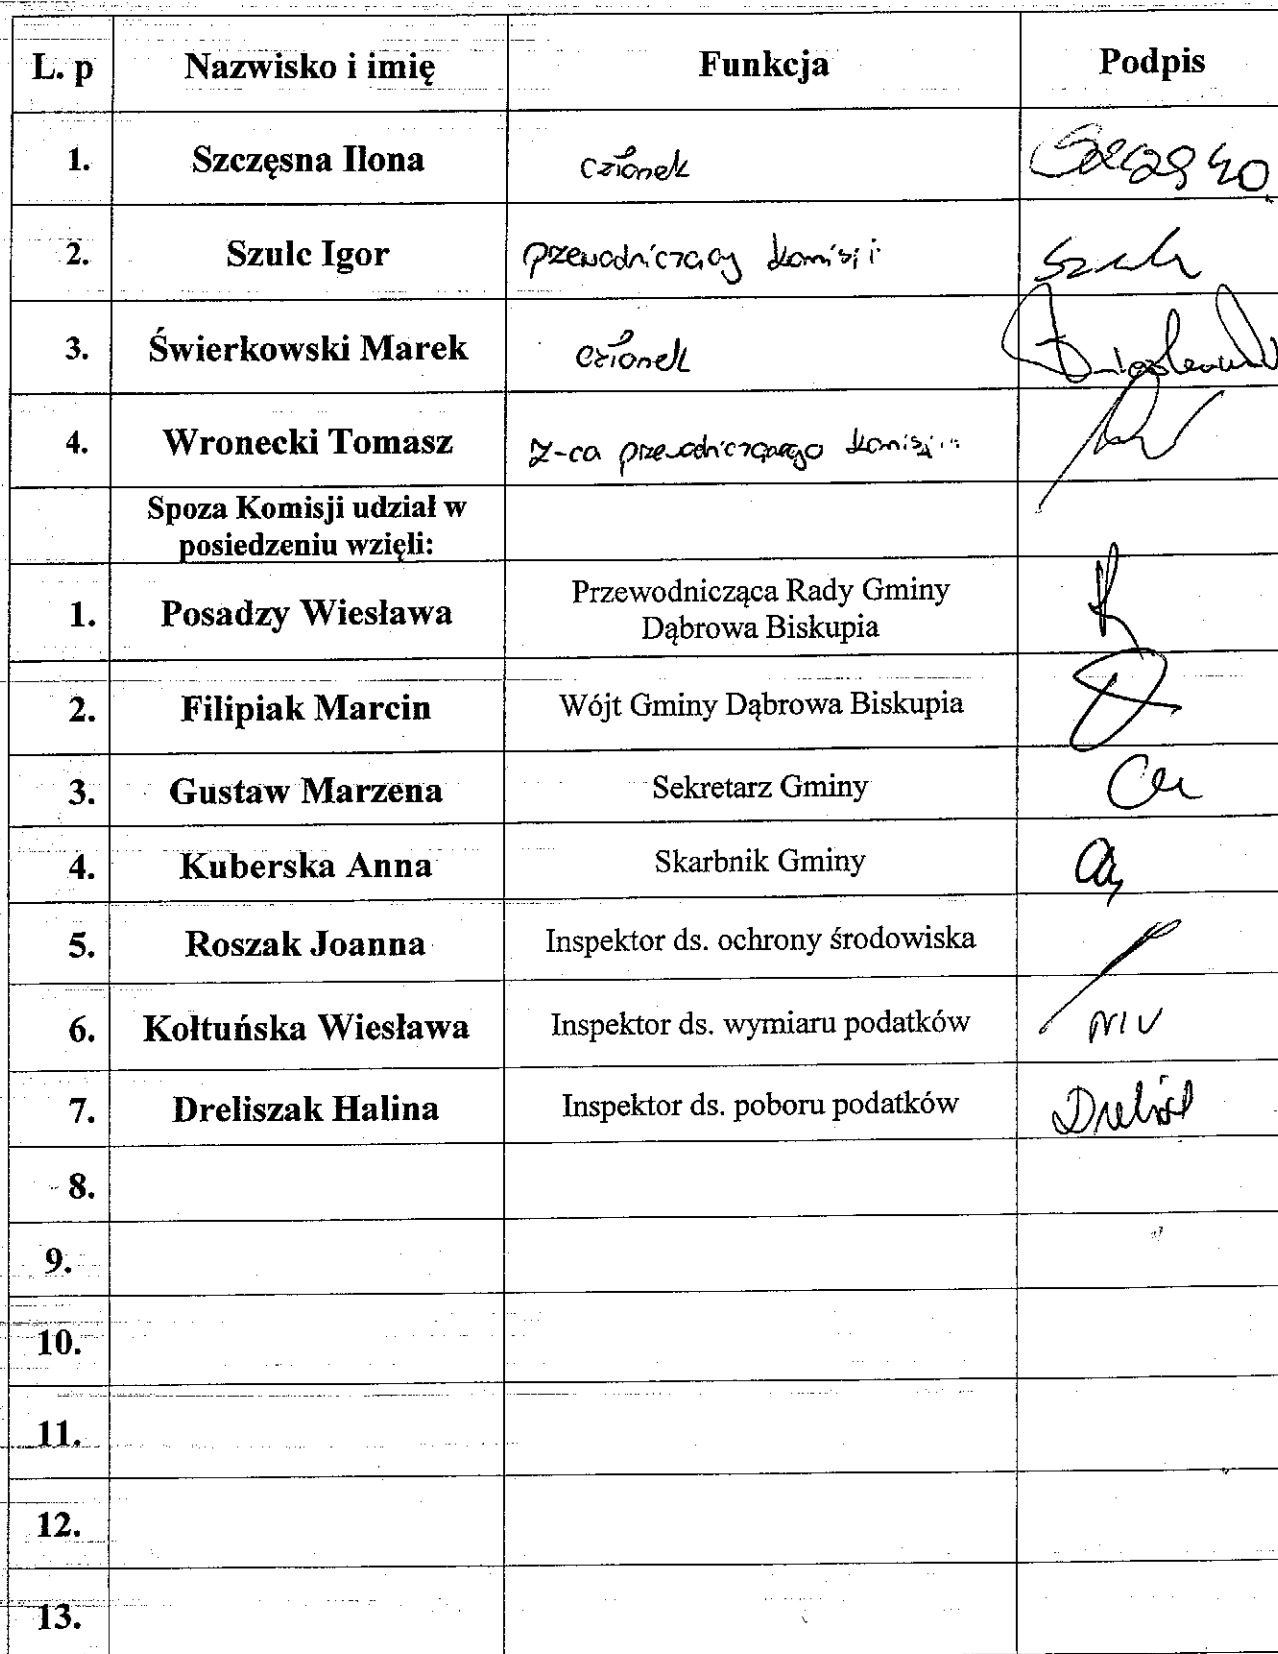 L. p Nazwisko i imię Funkcja Podpis
1. Szczęsna Ilona członek
2. Szulc Igor przewodniczący komisji Szulc
3. Świerkowski Marek członek
4. Wronecki Tomasz z-ca przewodniczącego komisji
Spoza Komisji udział w
posiedzeniu wzięli:
1. Posadzy Wiesława Przewodnicząca Rady Gminy
Dąbrowa Biskupia
2. Filipiak Marcin Wójt Gminy Dąbrowa Biskupia
3. Gustaw Marzena Sekretarz Gminy
4. Kuberska Anna Skarbnik Gminy
5. Roszak Joanna Inspektor ds. ochrony środowiska
6. Kołtuńska Wiesława Inspektor ds. wymiaru podatków
7. Dreliszak Halina Inspektor ds. poboru podatków
8.
9.
10.
11.
12.
13.